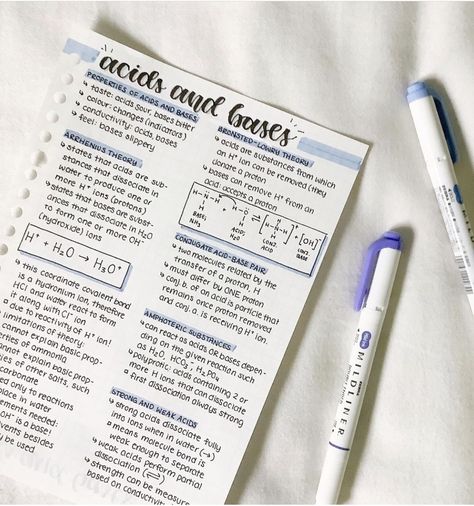 acids and bases
PROPERTIES OF ACIDS AND BASES
↳ taste: acids sour, bases bitter
↳ colour: changes (indicators)
↳ conductivity: acids, bases
↳ feel: bases slippery
ARRHENIUS THEORY
↳ states that acids are sub-
stances that dissociate in
water to produce one or
more H⁺ ions (protons)
↳ states that bases are subst-
ances that dissociate in H₂O
to form one or more OH⁻
(hydroxide) ions
H⁺ + H₂O → H₃O⁺
↳ this coordinate covalent bond
is a hydronium ion, therefore
HCl and water react to form
it along with Cl⁻ ion
due to reactivity of H⁺ ion!
limitations of theory:
cannot explain basic prop-
erties of ammonia
cannot explain basic prop-
erties of other salts, such
carbonate
ed only to reactions
place in water
ements needed:
OH⁻ is a base!
vents besides
y be used
BRONSTED-LOWRY THEORY
↳ acids are substances from which
an H⁺ ion can be removed (they
donate a proton)
↳ bases can remove H⁺ from an
acid: accepts a proton
BASE: NH₃
ACID: H₂O
CONJ. ACID
[OH]⁻
CONJ. BASE
CONJUGATE ACID-BASE PAIR
↳ two molecules related by the
transfer of a proton, H
↳ must differ by ONE proton
↳ conj. b. of an acid is particle that
remains once proton removed
and conj. a. is receiving H⁺ ion
AMPHOTERIC SUBSTANCES
↳ can react as acids OR bases depen-
ding on the given reaction such
as H₂O, HCO₃⁻, H₂PO₄
↳ polyprotic: acids containing 2 or
more H ions that can dissociate
↳ first dissociation always strong
STRONG AND WEAK ACIDS
↳ strong acids dissociate fully
into ions when in water (→)
↳ means molecule bond is
weak enough to separate
↳ weak acids perform partial
dissociation (⇌)
↳ strength can be measure
based on conductivity
MILDLINER